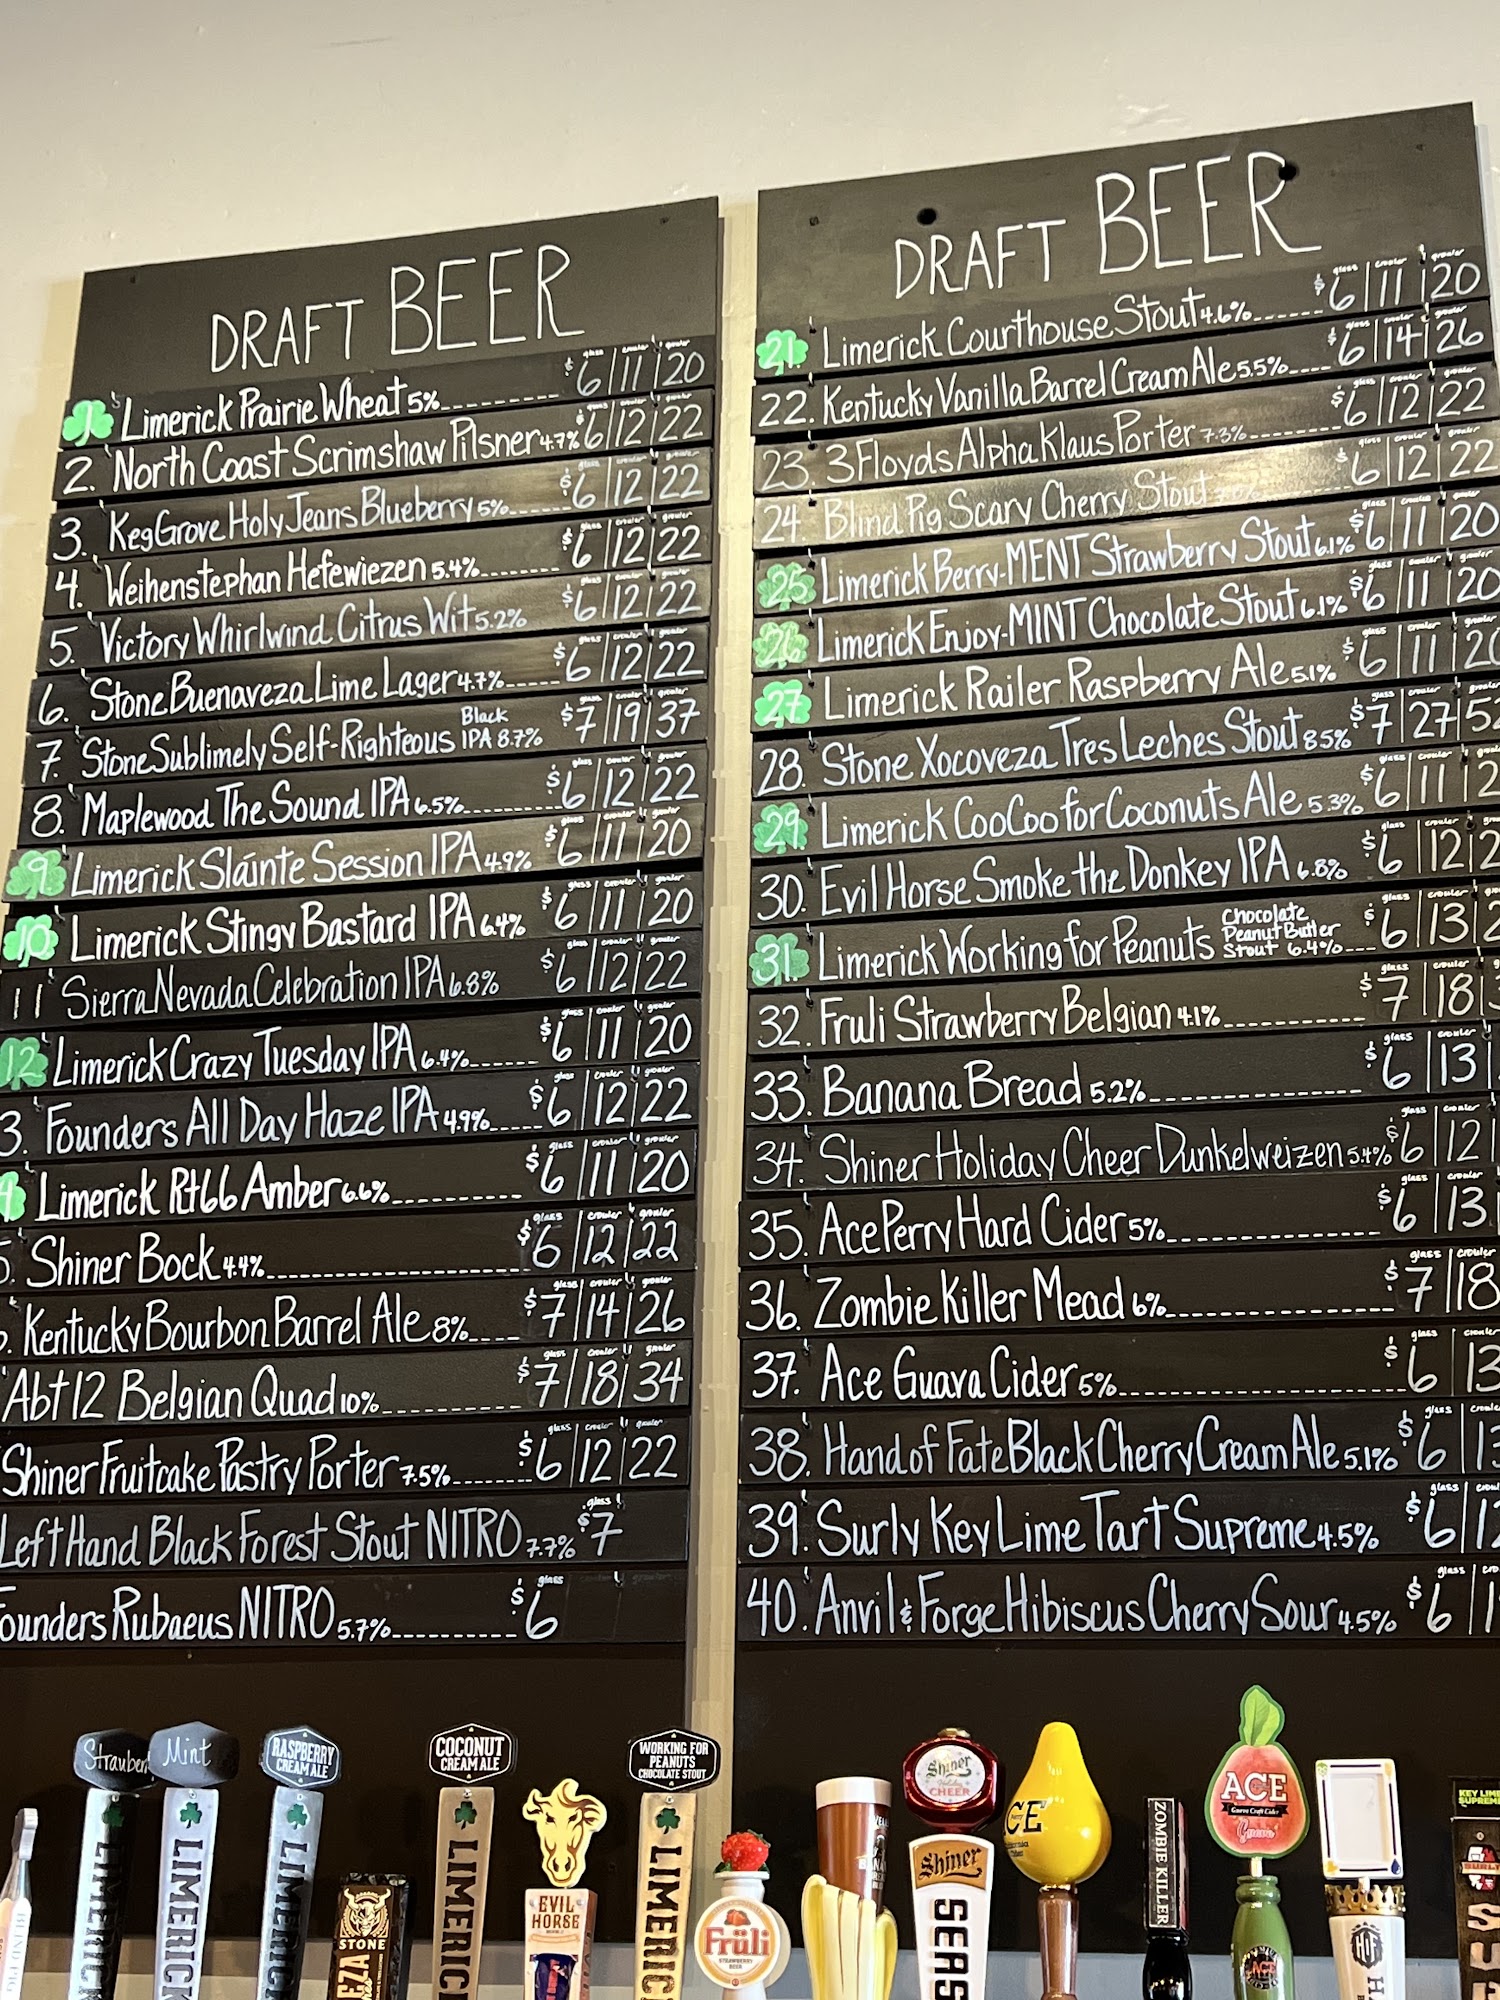 DRAFT BEER
glass crowler growler
1. Limerick Prairie Wheat 5% $6|11|20
2. North Coast Scrimshaw Pilsner 4.7% $6|12|22
3. Keg Grove Holy Jeans Blueberry 5% $6|12|22
4. Weihenstephan Hefewiezen 5.4% $6|12|22
5. Victory Whirlwind Citrus Wit 5.2% $6|12|22
6. Stone Buenaveza Lime Lager 4.7% $6|12|22
7. Stone Sublimely Self-Righteous Black IPA 8.7% $7|19|37
8. Maplewood The Sound IPA 6.5% $6|12|22
9. Limerick Sláinte Session IPA 4.9% $6|11|20
10. Limerick Stingy Bastard IPA 6.4% $6|11|20
11 Sierra Nevada Celebration IPA 6.8% $6|12|22
12 Limerick Crazy Tuesday IPA 6.4% $6|11|20
3. Founders All Day Haze IPA 4.9% $6|12|22
4 Limerick Rt66 Amber 6.6% $6|11|20
5. Shiner Bock 4.4% $6|12|22
Kentucky Bourbon Barrel Ale 8% $7|14|26
Abt 12 Belgian Quad 10% $7|18|34
Shiner Fruitcake Pastry Porter 7.5% $6|12|22
Left Hand Black Forest Stout NITRO 7.7% $7
ounders Rubaeus NITRO 5.7% $6
DRAFT BEER
glass crowler growler
21. Limerick Courthouse Stout 4.6% $6|11|20
22. Kentucky Vanilla Barrel Cream Ale 5.5% $6|14|26
23. 3 Floyds Alpha Klaus Porter 7.3% $6|12|22
24. Blind Pig Scary Cherry Stout $6|12|22
25 Limerick Berry-MENT Strawberry Stout 6.1% $6|11|20
26 Limerick Enjoy-MINT Chocolate Stout 6.1% $6|11|20
27 Limerick Railer Raspberry Ale 5.1% $6|11|20
28. Stone Xocoveza Tres Leches Stout 8.5% $7|27|5
29 Limerick CooCoo for Coconuts Ale 5.3% $6|11|2
30. Evil Horse Smoke the Donkey IPA 6.8% $6|12|2
31. Limerick Working for Peanuts Chocolate Peanut Butter Stout 6.4% $6|13|2
32. Fruli Strawberry Belgian 4.1% $7|18|
33. Banana Bread 5.2% $6|13|
34. Shiner Holiday Cheer Dunkelweizen 5.4% $6|12|
35. Ace Perry Hard Cider 5% $6|13
36. Zombie Killer Mead 6% $7|18
37. Ace Guava Cider 5% $6|13
38. Hand of Fate Black Cherry Cream Ale 5.1% $6|1
39. Surly Key Lime Tart Supreme 4.5% $6|1
40. Anvil & Forge Hibiscus Cherry Sour 4.5% $6|1
Mint
RASPBERRY
CREAM ALE
COCONUT
CREAM ALE
WORKING FOR
PEANUTS
CHOCOLATE STOUT
LIMERICK
LIMERICK
LIMERICK
STONE
LIMERICK
EVIL
HORSE
LIMERICK
Früli
STRAWBERRY
BEER
Shiner
Holiday
CHEER
Shiner
SEAS
CE
ZOMBIE KILLER
ACE
Guava Craft Cider
Guava
ACE
HOF
KEY LIME
SUPREME
SURLY